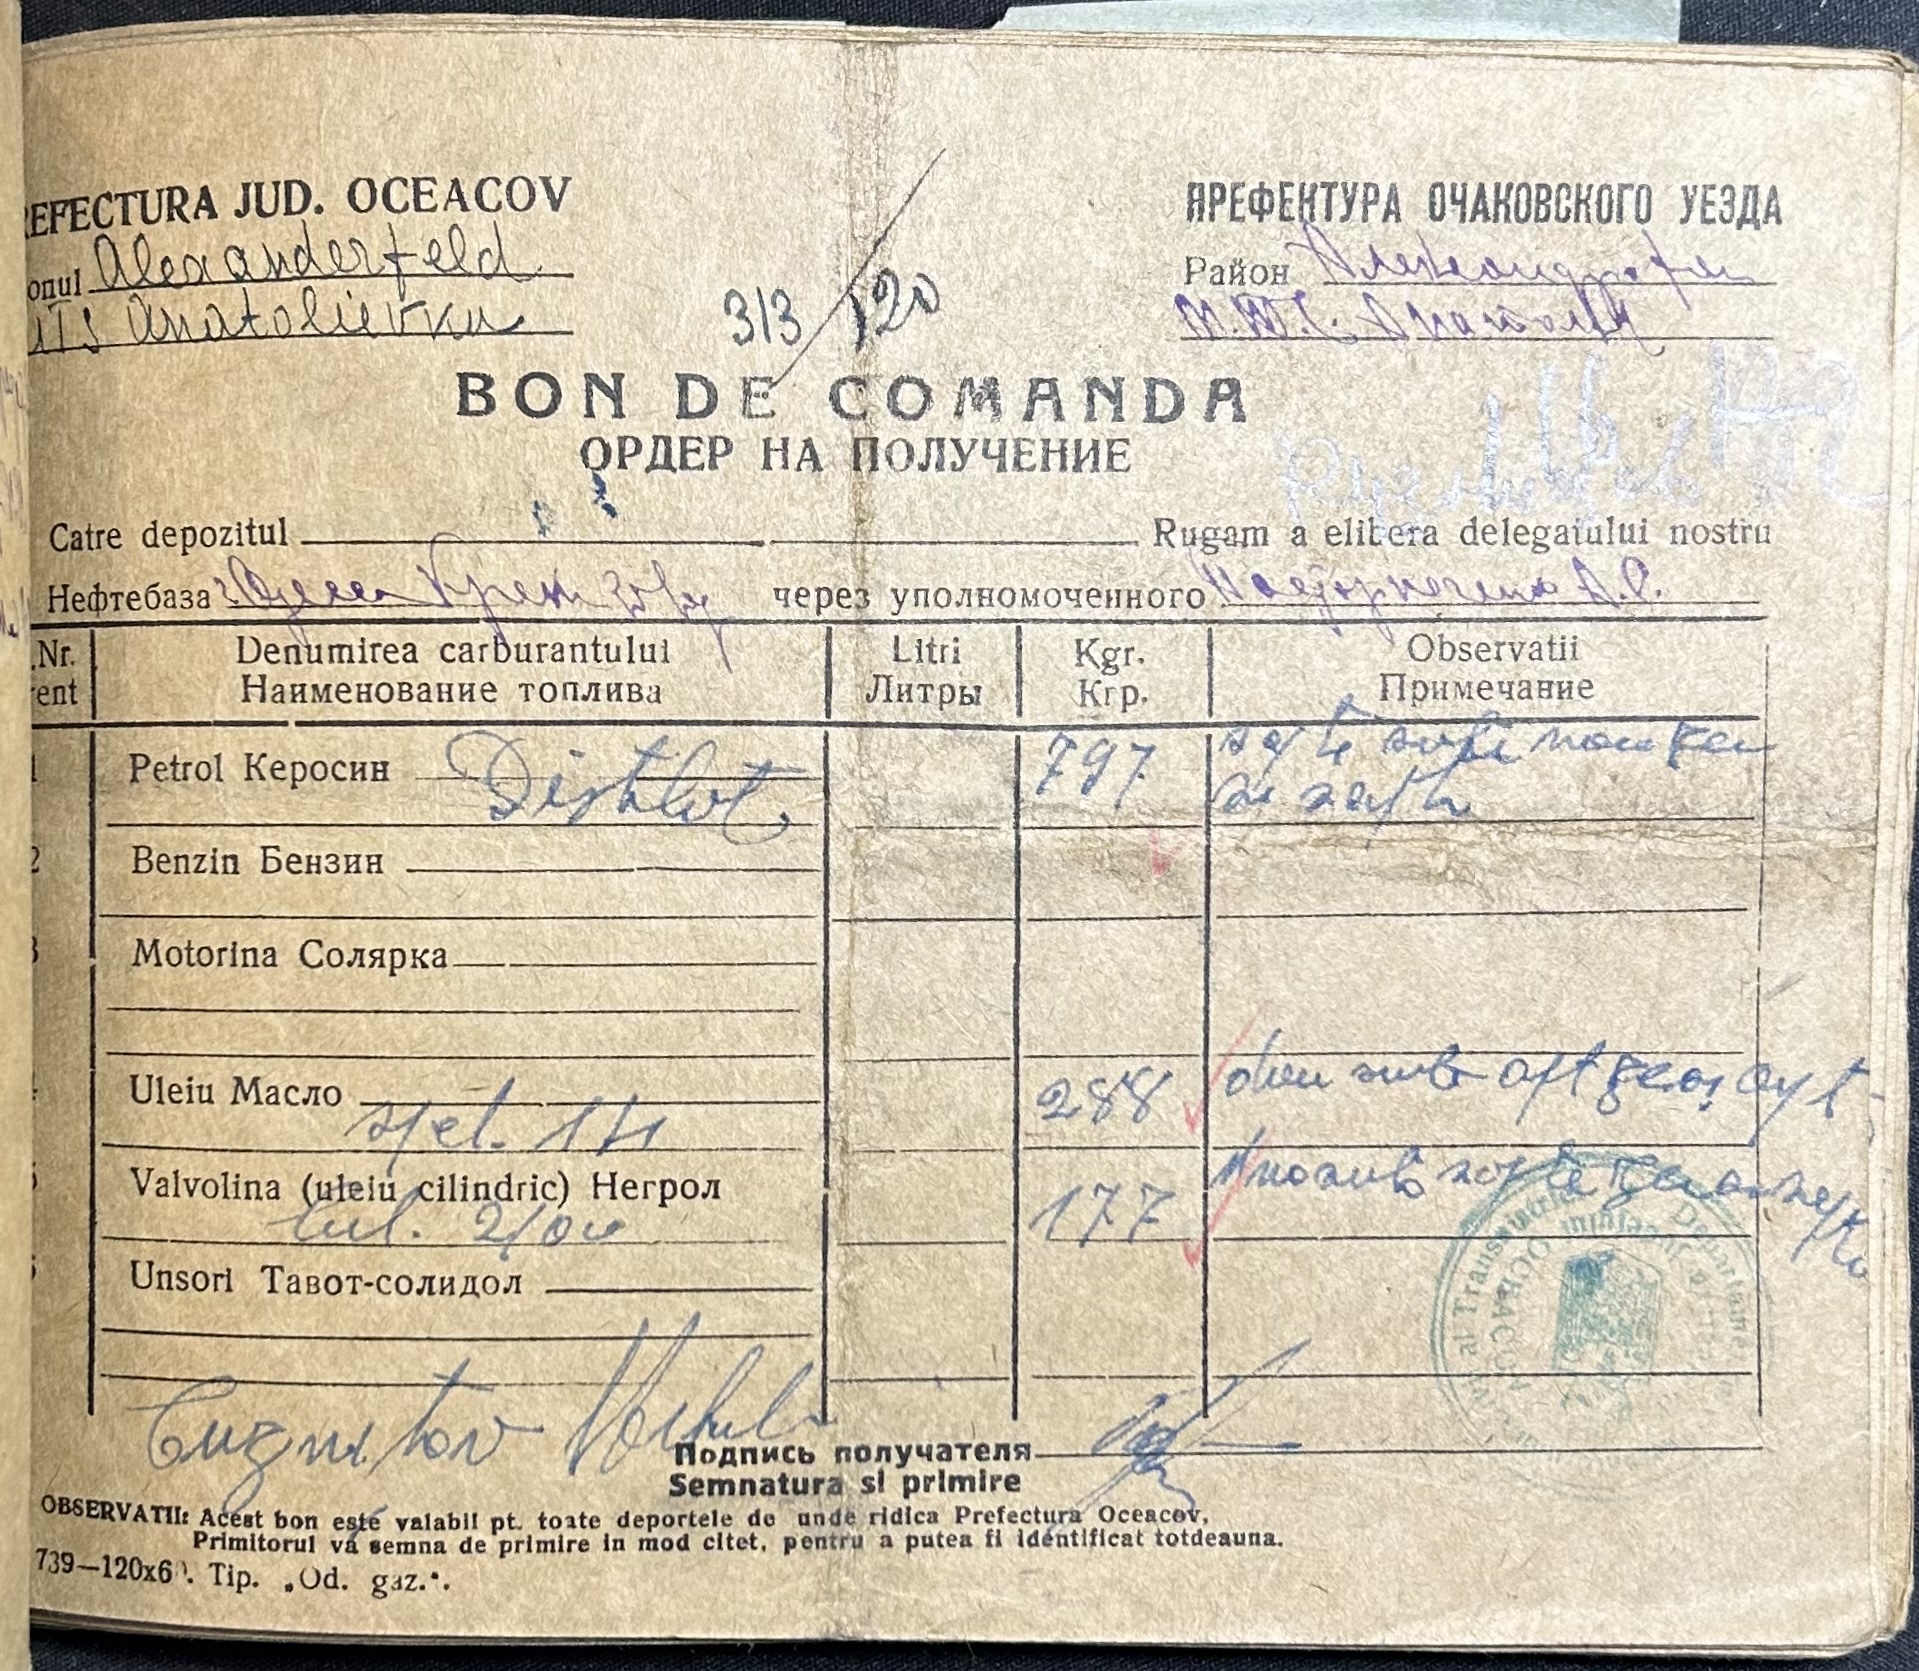 EFECTURA JUD. OCEACOV
onul Alexanderfeld
MTS Anatolievka
313/120
ПРЕФЕКТУРА ОЧАКОВСКОГО УЕЗДА
Район
М.Т.С.
BON DE COMANDA
ОРДЕР НА ПОЛУЧЕНИЕ
Catre depozitul Rugam a elibera delegatului nostru
Нефтебаза через уполномоченного А.
.Nr. Denumirea carburantului Litri Kgr. Observatii
rent Наименование топлива Литры Кгр. Примечание
1 Petrol Керосин Distilat 797 sapte sute nouzeci
si sapte
2 Benzin Бензин
3 Motorina Солярка
4 Uleiu Масло 288 doua sute optzeci opt
5 Valvolina (uleiu cilindric) Негрол 177 una suta saptezeci sapte
cil. 2
Unsori Тавот-солидол
Подпись получателя
Semnatura si primire
OBSERVATII: Acest bon este valabil pt. toate deportele de unde ridica Prefectura Oceacov.
Primitorul va semna de primire in mod citet, pentru a putea fi identificat totdeauna.
739—120x60. Tip. „Od. gaz.“.
al Transnistriei
OCEACOV